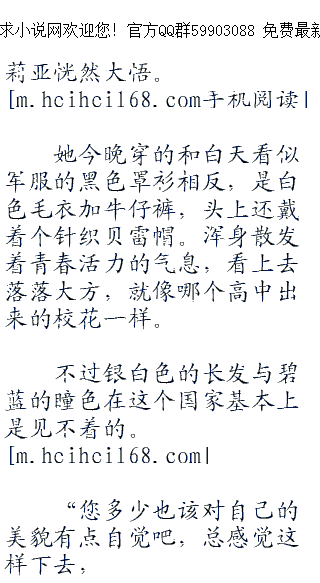 求小说网欢迎您! 官方QQ群59903088 免费最新
莉亚恍然大悟。
[m.hcihcil68.com手机阅读|
她今晚穿的和白天看似
军服的黑色罩衫相反，是白
色毛衣加牛仔裤，头上还戴
着个针织贝雷帽。浑身散发
着青春活力的气息，看上去
落落大方，就像哪个高中出
来的校花一样。
不过银白色的长发与碧
蓝的瞳色在这个国家基本上
是见不着的。
[m.hcihcil68.com|
“您多少也该对自己的
美貌有点自觉吧，总感觉这
样下去，